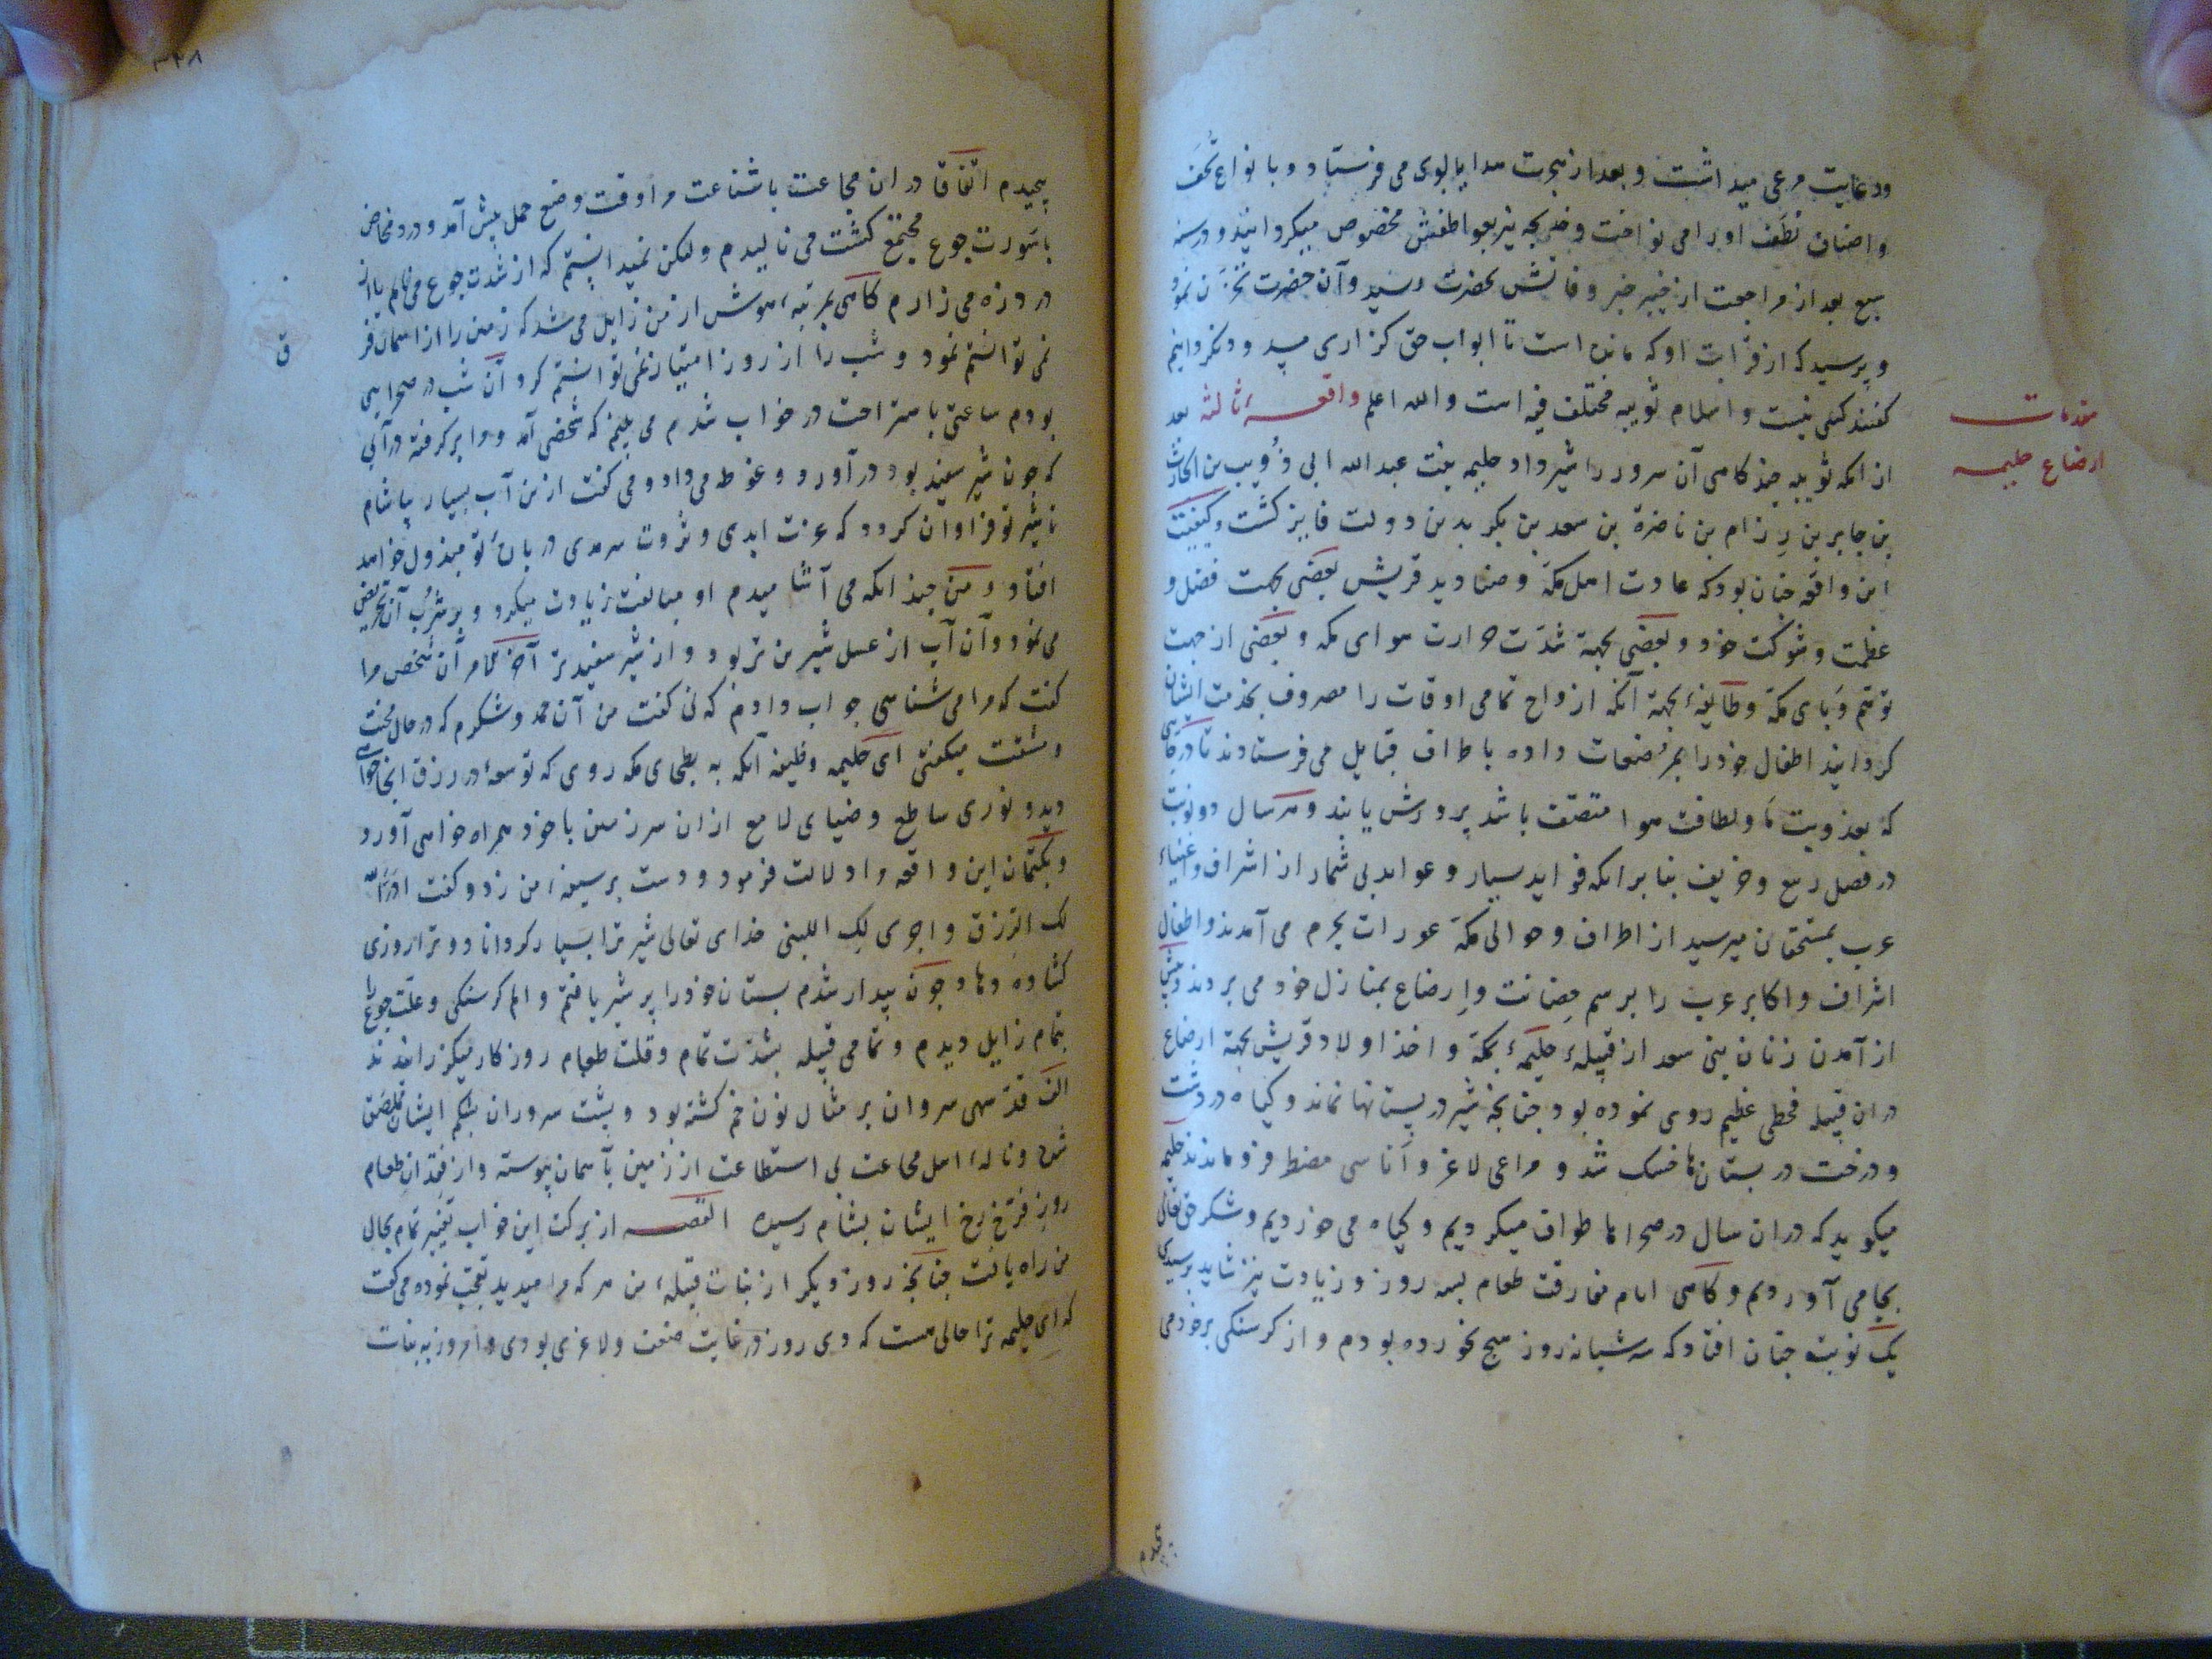 ورعایت مرعی میداشت و بعد از هجرت هدایا بوی می فرستاد و بانواع تحف
واصناف تطف او را می نواخت و خدیجه نیز بعواطفش مخصوص میکردانید و در سنه
سبع بعد از مراجعت از خیبر خبر وفاتش بحضرت رسید و آن حضرت تحزن نمود
و پرسید که از قرابت او که مانده است تا ابواب حق کزاری مسدود نکردانیم
کفتند کسی نیست و اسلام ثویبه مختلف فیه است والله اعلم واقعهٔ ثالثه بعد
مقدمات
ارضاع حلیمه
از انکه ثویبه چند کاهی آن سرور را شیر داد حلیمه بنت عبدالله ابی ذویب بن الحارث
بن جابر بن رزام بن ناضرة بن سعد بن بکر بدین دولت فایز کشت و کیفیت
این واقعه چنان بود که عادت اهل مکه و صنادید قریش بعضی بجهت فضل و
عظمت و شوکت خود و بعضی بجهة شدّت حرارت هوای مکه و بعضی از جهت
توهّم وبای مکّه و طایفهٔ بجهة آنکه ازواج تمامی اوقات را مصروف بخدمت ایشان
کردانید اطفال خود را بمرضعات داده باطراف قبایل می فرستادند تا در جایی
که بعذوبت ما و لطافت هوا متصف باشد پرورش یابند و هر سال دو نوبت
در فصل ربیع و خریف بنا بر انکه فواید بسیار و عواید بی شمار از اشراف و اغنیاء
عرب بمستحقان میرسید از اطراف و حوالی مکّه عورات بحرم می آمدند و اطفال
اشراف و اکابر عرب را برسم حضانت و ارضاع بمنازل خود می بردند و پیش
از آمدن زنان بنی سعد از قبیلهٔ حلیمه بمکّه و اخذ اولاد قریش بجهة ارضاع
در ان قبیله قحطی عظیم روی نموده بود چنانچه شیر در پستانها نماند و کیاه در دشت
و درخت در بستان ها خشک شد و مراعی لاغر و اناسی مضطر فرو ماندند حلیمه
میکوید که دران سال در صحراها طواف میکردیم و کیاه می خوردیم و شکر حق تعالی
بجا می آوردیم و کاهی ایام مفارقت طعام بسه روز و زیادت نیز شاید برسیدی
یک نوبت چنان افتاد که سه شبانه روز هیچ نخورده بودم و از کرسنکی بر خود می
بیچیدم
۳۴۸
بیچیدم اتفاقا دران مجاعت باشناعت مرا وقت وضع حمل پیش آمد و درد مخاض
باسورت جوع مجتمع کشت می نالیدم ولکن نمیدانستم که از شدت جوع می نالم یا از
درد زه می زارم کاهی بمرتبهٔ هوش از من زایل می شد که زمین را از اسمان فر
ق
نمی توانستم نمود و شب را از روز امتیاز نمی توانستم کرد و آن شب در صحرایی
بودم ساعتی باستراحت در خواب شدم می بینم که شخصی آمد و مرا برکرفته در آبی
که چون شیر سفید بود در آورد و غوطه می داد و می کفت ازین آب بسیار بیاشام
تا شیر تو فراوان کردد که عزت ابدی و ثروت سرمدی در بارهٔ تو مبذول خواهد
افتاد و من چندانکه می آشامیدم او مبالغت زیادت میکرد و بر شرب آن تحریض
می نمود و آن آب از عسل شیرین تر بود و از شیر سفیدتر آخر کار آن شخص مرا
کفت که مرا می شناسی جواب دادم که نی کفت من آن حمد و شکرم که در حال محنت
و مشقت میکفتی ای حلیمه وظیفه آنکه به بطحای مکه روی که توسعهٔ در رزق انجا خواهی
دید و نوری ساطع و ضیای لامع ازان سرزمین با خود همراه خواهی آورد
و بکتمان این واقعه مرا دلالت فرمود و دست برسینهٔ من زد و کفت ادرّ الله
لک الرزق و اجری لک اللبن خدای تعالی شیر ترا بسیار کرداناد و ترا روزی
کشاده دهاد چون بیدار شدم بستان خود را پر شیر یافتم و الم کرسنکی و علّت جوع را
بتمام زایل دیدم و تمامی قبیله بشدّت تمام و قلت طعام روزکار میکزرانیدند
الف قدّ سهی سروان بر مثال نون خم کشته بود و پشت سروران بشکم ایشان ملتصق
شده و نالهٔ اهل مجاعت بی استطاعت از زمین بآسمان پیوسته و از فقدان طعام
روز فرّخ رخ ایشان بشام رسیده القصه از برکت این خواب تغییر تمام بحال
من راه یافت چنانچه روز دیکر از بنات قبیلهٔ من هر که مرا میدید تعجّب نموده می کفت
که ای حلیمه ترا حالی هست که دی روز در غایت ضعف و لاغری بودی و امروز به بنات